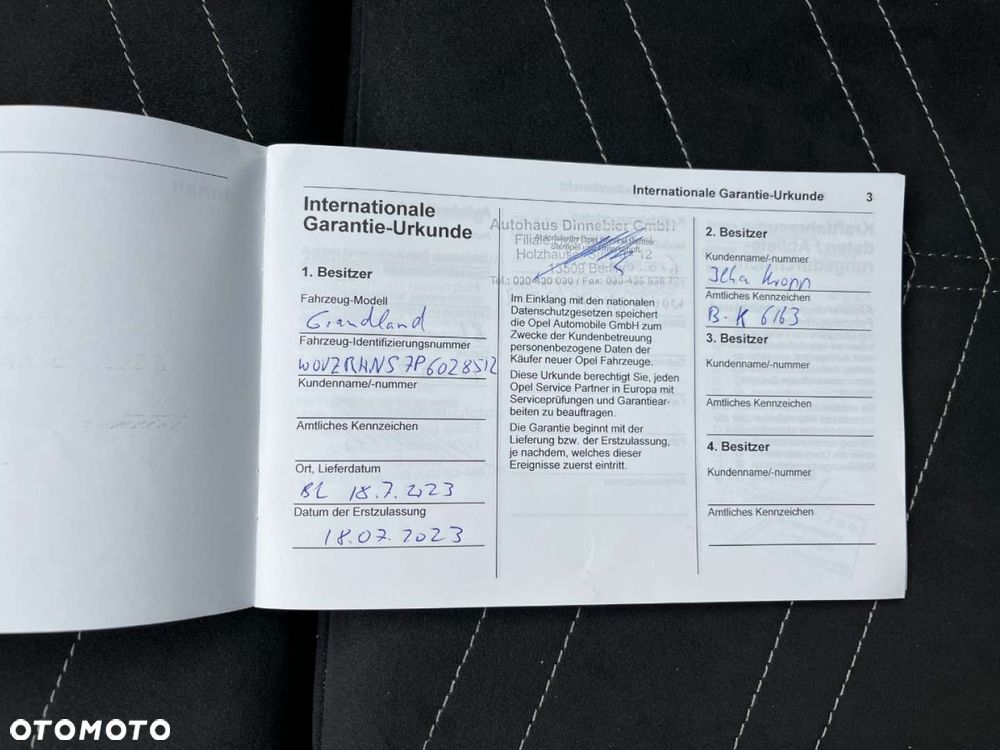 Internationale Garantie-Urkunde 3
Internationale
Garantie-Urkunde
1. Besitzer
Fahrzeug-Modell
Grandland
Fahrzeug-Identifizierungsnummer
W0VZRHNS7P6028512
Kundenname/-nummer
Amtliches Kennzeichen
Ort, Lieferdatum
BL 18.7.2023
Datum der Erstzulassung
18.07.2023
Autohaus Dinnebier GmbH
Filiale
Autorisierter Opel Service Partner
Stempel und Unterschrift
Holzhauser 12
13509 Berlin
Im Einklang mit den nationalen
Datenschutzgesetzen speichert
die Opel Automobile GmbH zum
Zwecke der Kundenbetreuung
personenbezogene Daten der
Käufer neuer Opel Fahrzeuge.
Diese Urkunde berechtigt Sie, jeden
Opel Service Partner in Europa mit
Serviceprüfungen und Garantiear-
beiten zu beauftragen.
Die Garantie beginnt mit der
Lieferung bzw. der Erstzulassung,
je nachdem, welches dieser
Ereignisse zuerst eintritt.
2. Besitzer
Kundenname/-nummer
Amtliches Kennzeichen
B-K 6163
3. Besitzer
Kundenname/-nummer
Amtliches Kennzeichen
4. Besitzer
Kundenname/-nummer
Amtliches Kennzeichen
OTOMOTO